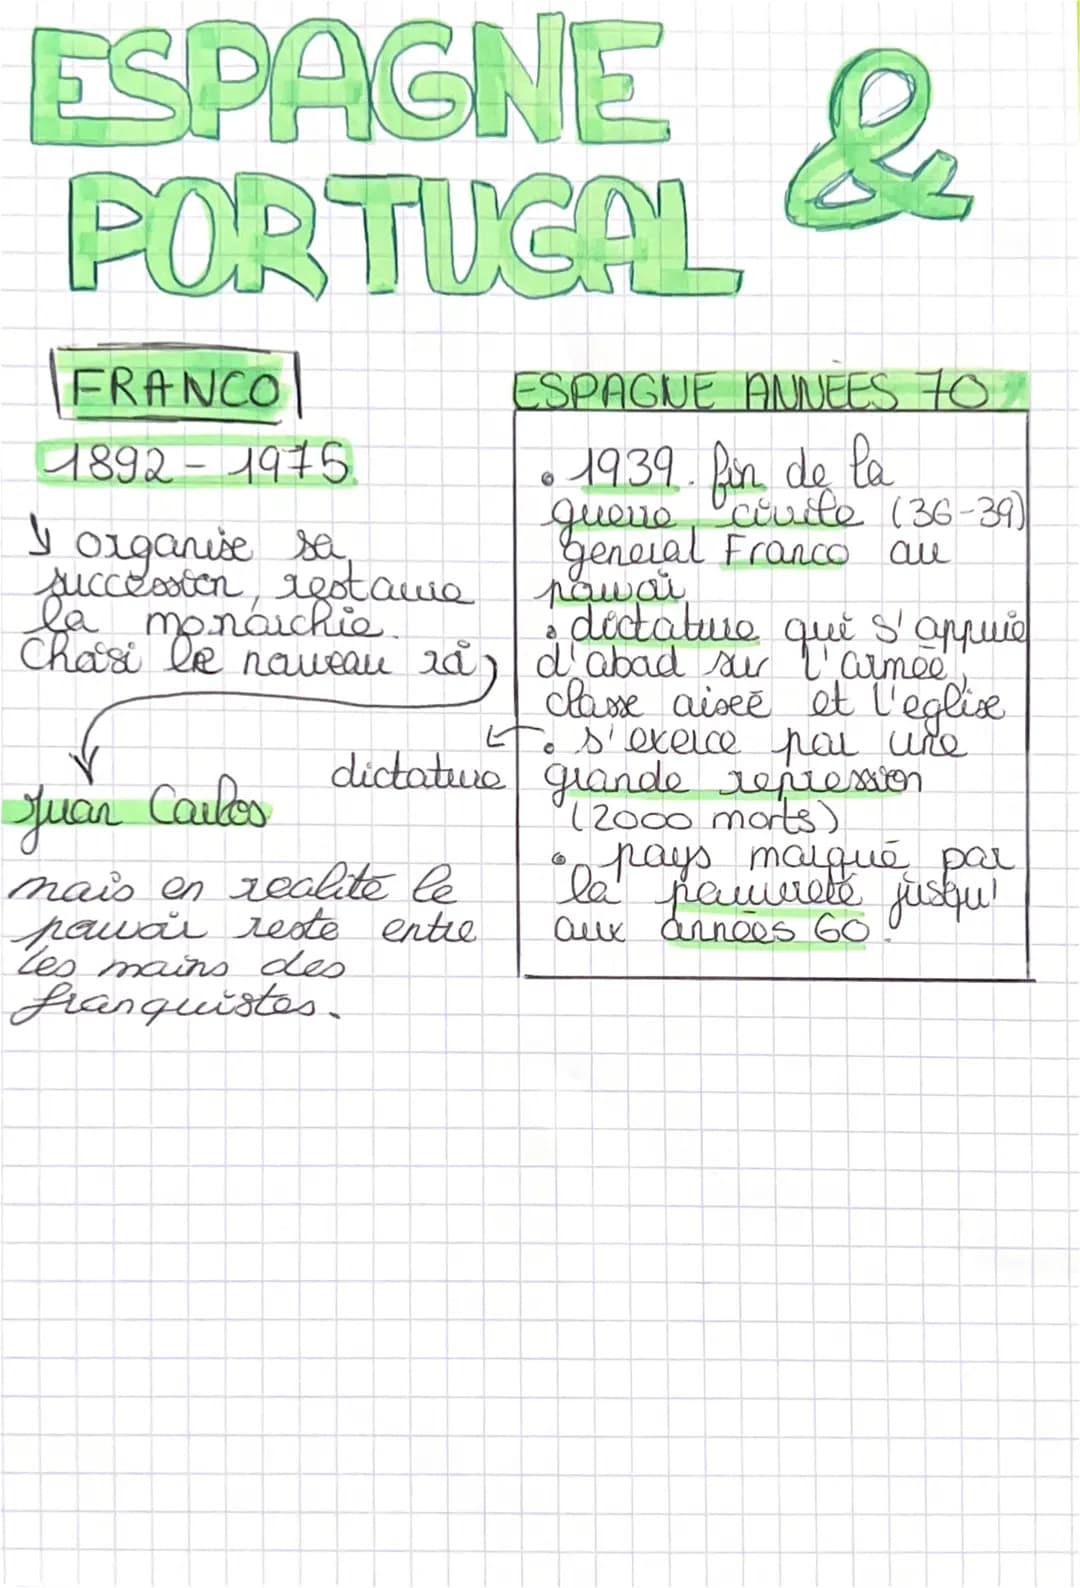 ESPAGNE &
PORTUGAL
FRANCO
1892 - 1975
↳ organise sa
succession, restaure
la monarchie.
Choisi le nouveau roi
Juan Carlos
mais en realité le
pouvoir reste entre
les mains des
franquistes.
ESPAGNE ANNÉES 70
• 1939. fin de la
guerre civile (36-39)
general Franco au
pouvoir
• dictature qui s'appuie
d'abord sur l'armée,
classe aiseé et l'eglise
• s'exerce par une
dictature
grande repression
(2000 morts)
• pays marqué par
la pauvreté jusqu'
aux années 60.